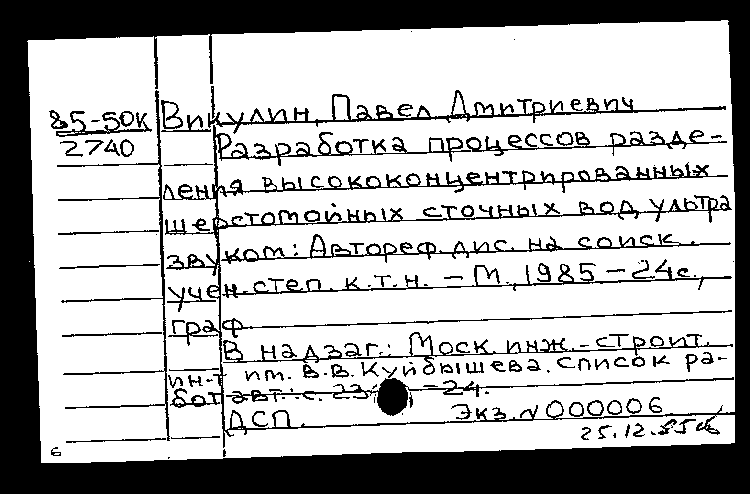 85-50к Викулин, Павел Дмитриевич
2740 Разработка процессов разде-
ления высококонцентрированных
шерстомойных сточных вод ультра
звуком: Автореф. дис. на соиск.
учен. степ. к.т.н. – М., 1985 – 24с.,
граф.
В надзаг.: Моск. инж.-строит.
ин-т им. В.В. Куйбышева. Список ра-
бот авт.: с. 23 –24.
ДСП. Экз. N 000006
25.12.85
6